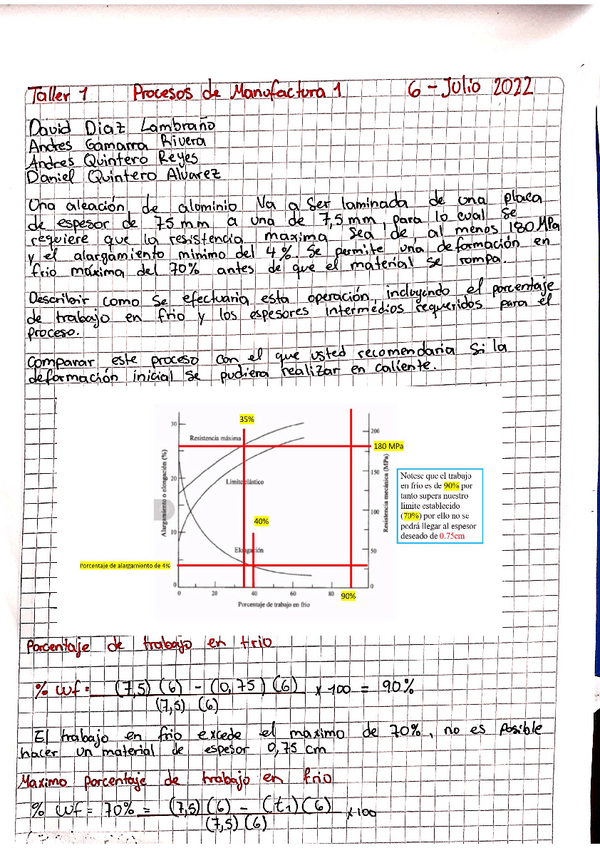 Taller 1 Procesos de Manufactura 1 6-Julio 2022
David Diaz Lambraño
Andres Gamarra Rivera
Andres Quintero Reyes
Daniel Quintero Alvarez
Una aleación de aluminio va a ser laminada de una placa
de espesor de 75 mm a una de 7,5 mm, para lo cual se
requiere que la resistencia maxima sea de al menos 180 MPa
y el alargamiento minimo del 4%. Se permite una deformación en
frio máxima del 70% antes de que el material se rompa.
Describir como se efectuaria esta operación, incluyendo el porcentaje
de trabajo en frio y los espesores intermedios requeridos para el
proceso.
Comparar este proceso con el que usted recomendaria si la
deformación inicial se pudiera realizar en caliente.
35%
30
Resistencia máxima
200
180 MPa
Límite elástico
150
20
Alargamiento o elongación (%)
Resistencia mecánica (MPa)
100
40%
10
Elongación
50
Porcentaje de alargamiento de 4%
0
0
0 20 40 60 80 100
90%
Porcentaje de trabajo en frio
Notese que el trabajo
en frio es de 90% por
tanto supera nuestro
limite establecido
(70%) por ello no se
podrá llegar al espesor
deseado de 0.75cm
Porcentaje de trabajo en frio
% wf = (7,5)(6) - (0,75)(6) x 100 = 90%
(7,5) (6)
El trabajo en frio excede el maximo de 70%, no es posible
hacer un material de espesor 0,75 cm
Maximo porcentaje de trabajo en frio
% wf = 70% = (7,5)(6) - (t1)(6) x100
(7,5)(6)